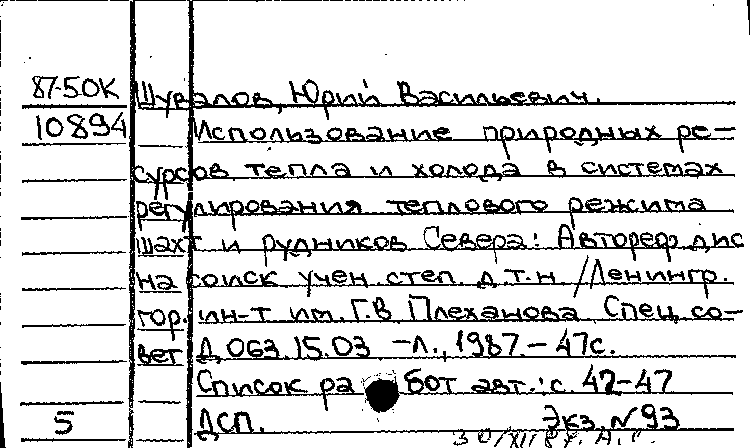 87-50К Шувалов, Юрий Васильевич.
10894 Использование природных ре-
сурсов тепла и холода в системах
регулирования теплового режима
шахт и рудников Севера: Автореф дис
на соиск учен степ. д.т.н /Ленингр.
гор. ин-т им. Г.В Плеханова Спец. со-
вет Д. 063.15.03 -Л., 1987. - 47с.
Список работ авт.: с. 42-47
5 ДСП. Экз. №93